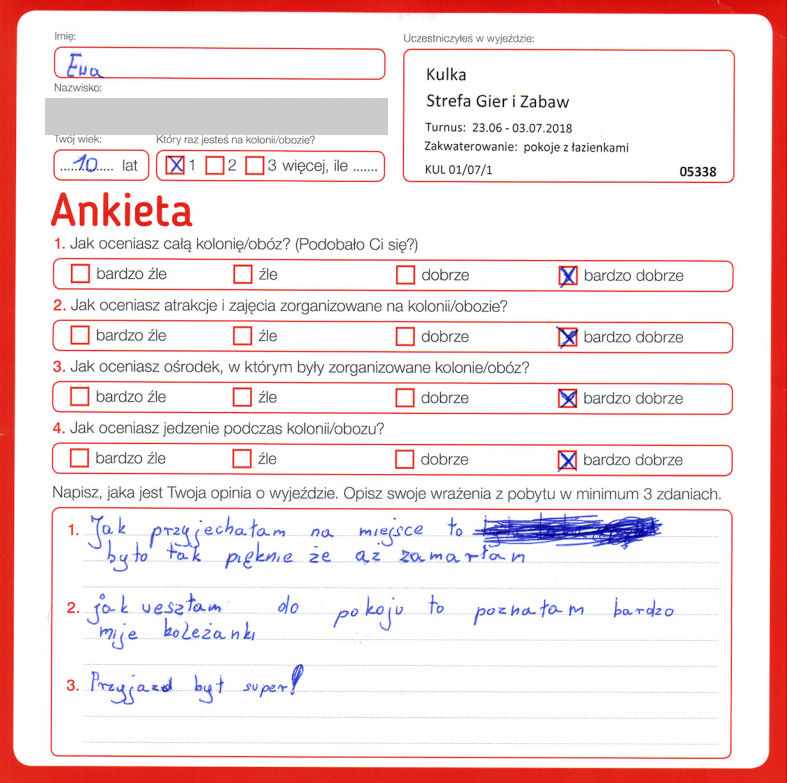 Imię:
Ewa
Nazwisko:
Twój wiek:
10 lat
Który raz jesteś na kolonii/obozie?
X 1 2 3 więcej, ile .......
Uczestniczyłeś w wyjeździe:
Kulka
Strefa Gier i Zabaw
Turnus: 23.06 - 03.07.2018
Zakwaterowanie: pokoje z łazienkami
KUL 01/07/1 05338
Ankieta
1. Jak oceniasz całą kolonię/obóz? (Podobało Ci się?)
bardzo źle źle dobrze X bardzo dobrze
2. Jak oceniasz atrakcje i zajęcia zorganizowane na kolonii/obozie?
bardzo źle źle dobrze X bardzo dobrze
3. Jak oceniasz ośrodek, w którym były zorganizowane kolonie/obóz?
bardzo źle źle dobrze X bardzo dobrze
4. Jak oceniasz jedzenie podczas kolonii/obozu?
bardzo źle źle dobrze X bardzo dobrze
Napisz, jaka jest Twoja opinia o wyjeździe. Opisz swoje wrażenia z pobytu w minimum 3 zdaniach.
1. Jak przyjechałam na miejsce to
było tak pięknie że aż zamarłam
2. jak weszłam do pokoju to poznałam bardzo
mije koleżanki
3. Przyjazd był super!